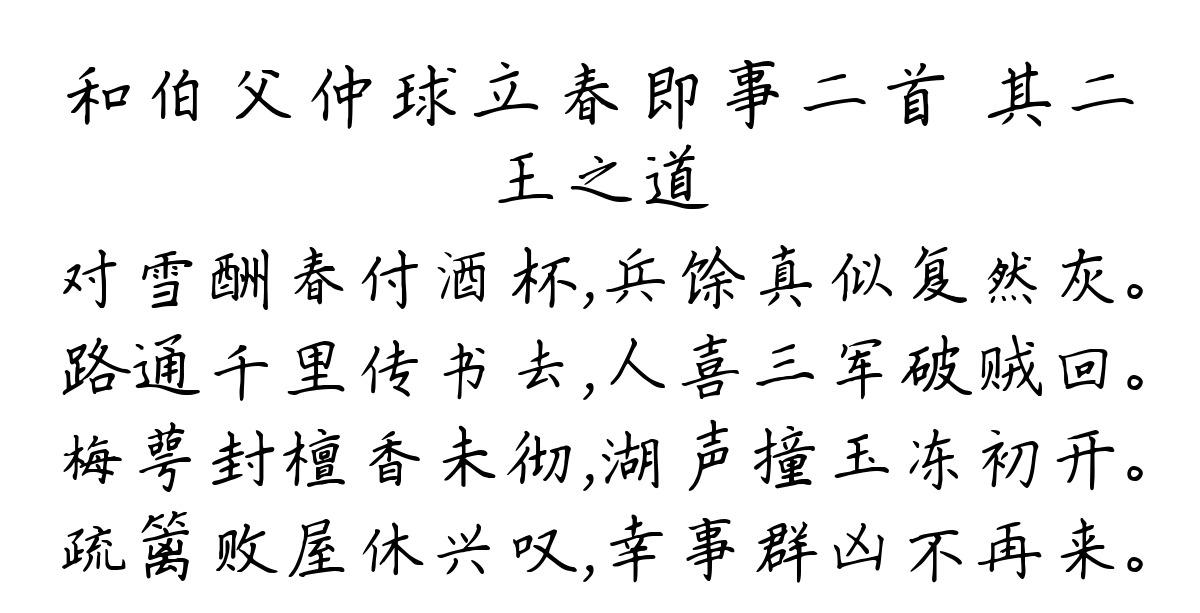 和伯父仲球立春即事二首 其二
王之道
对雪酬春付酒杯,兵馀真似复然灰。
路通千里传书去,人喜三军破贼回。
梅萼封檀香未彻,湖声撞玉冻初开。
疏篱败屋休兴叹,幸事群凶不再来。